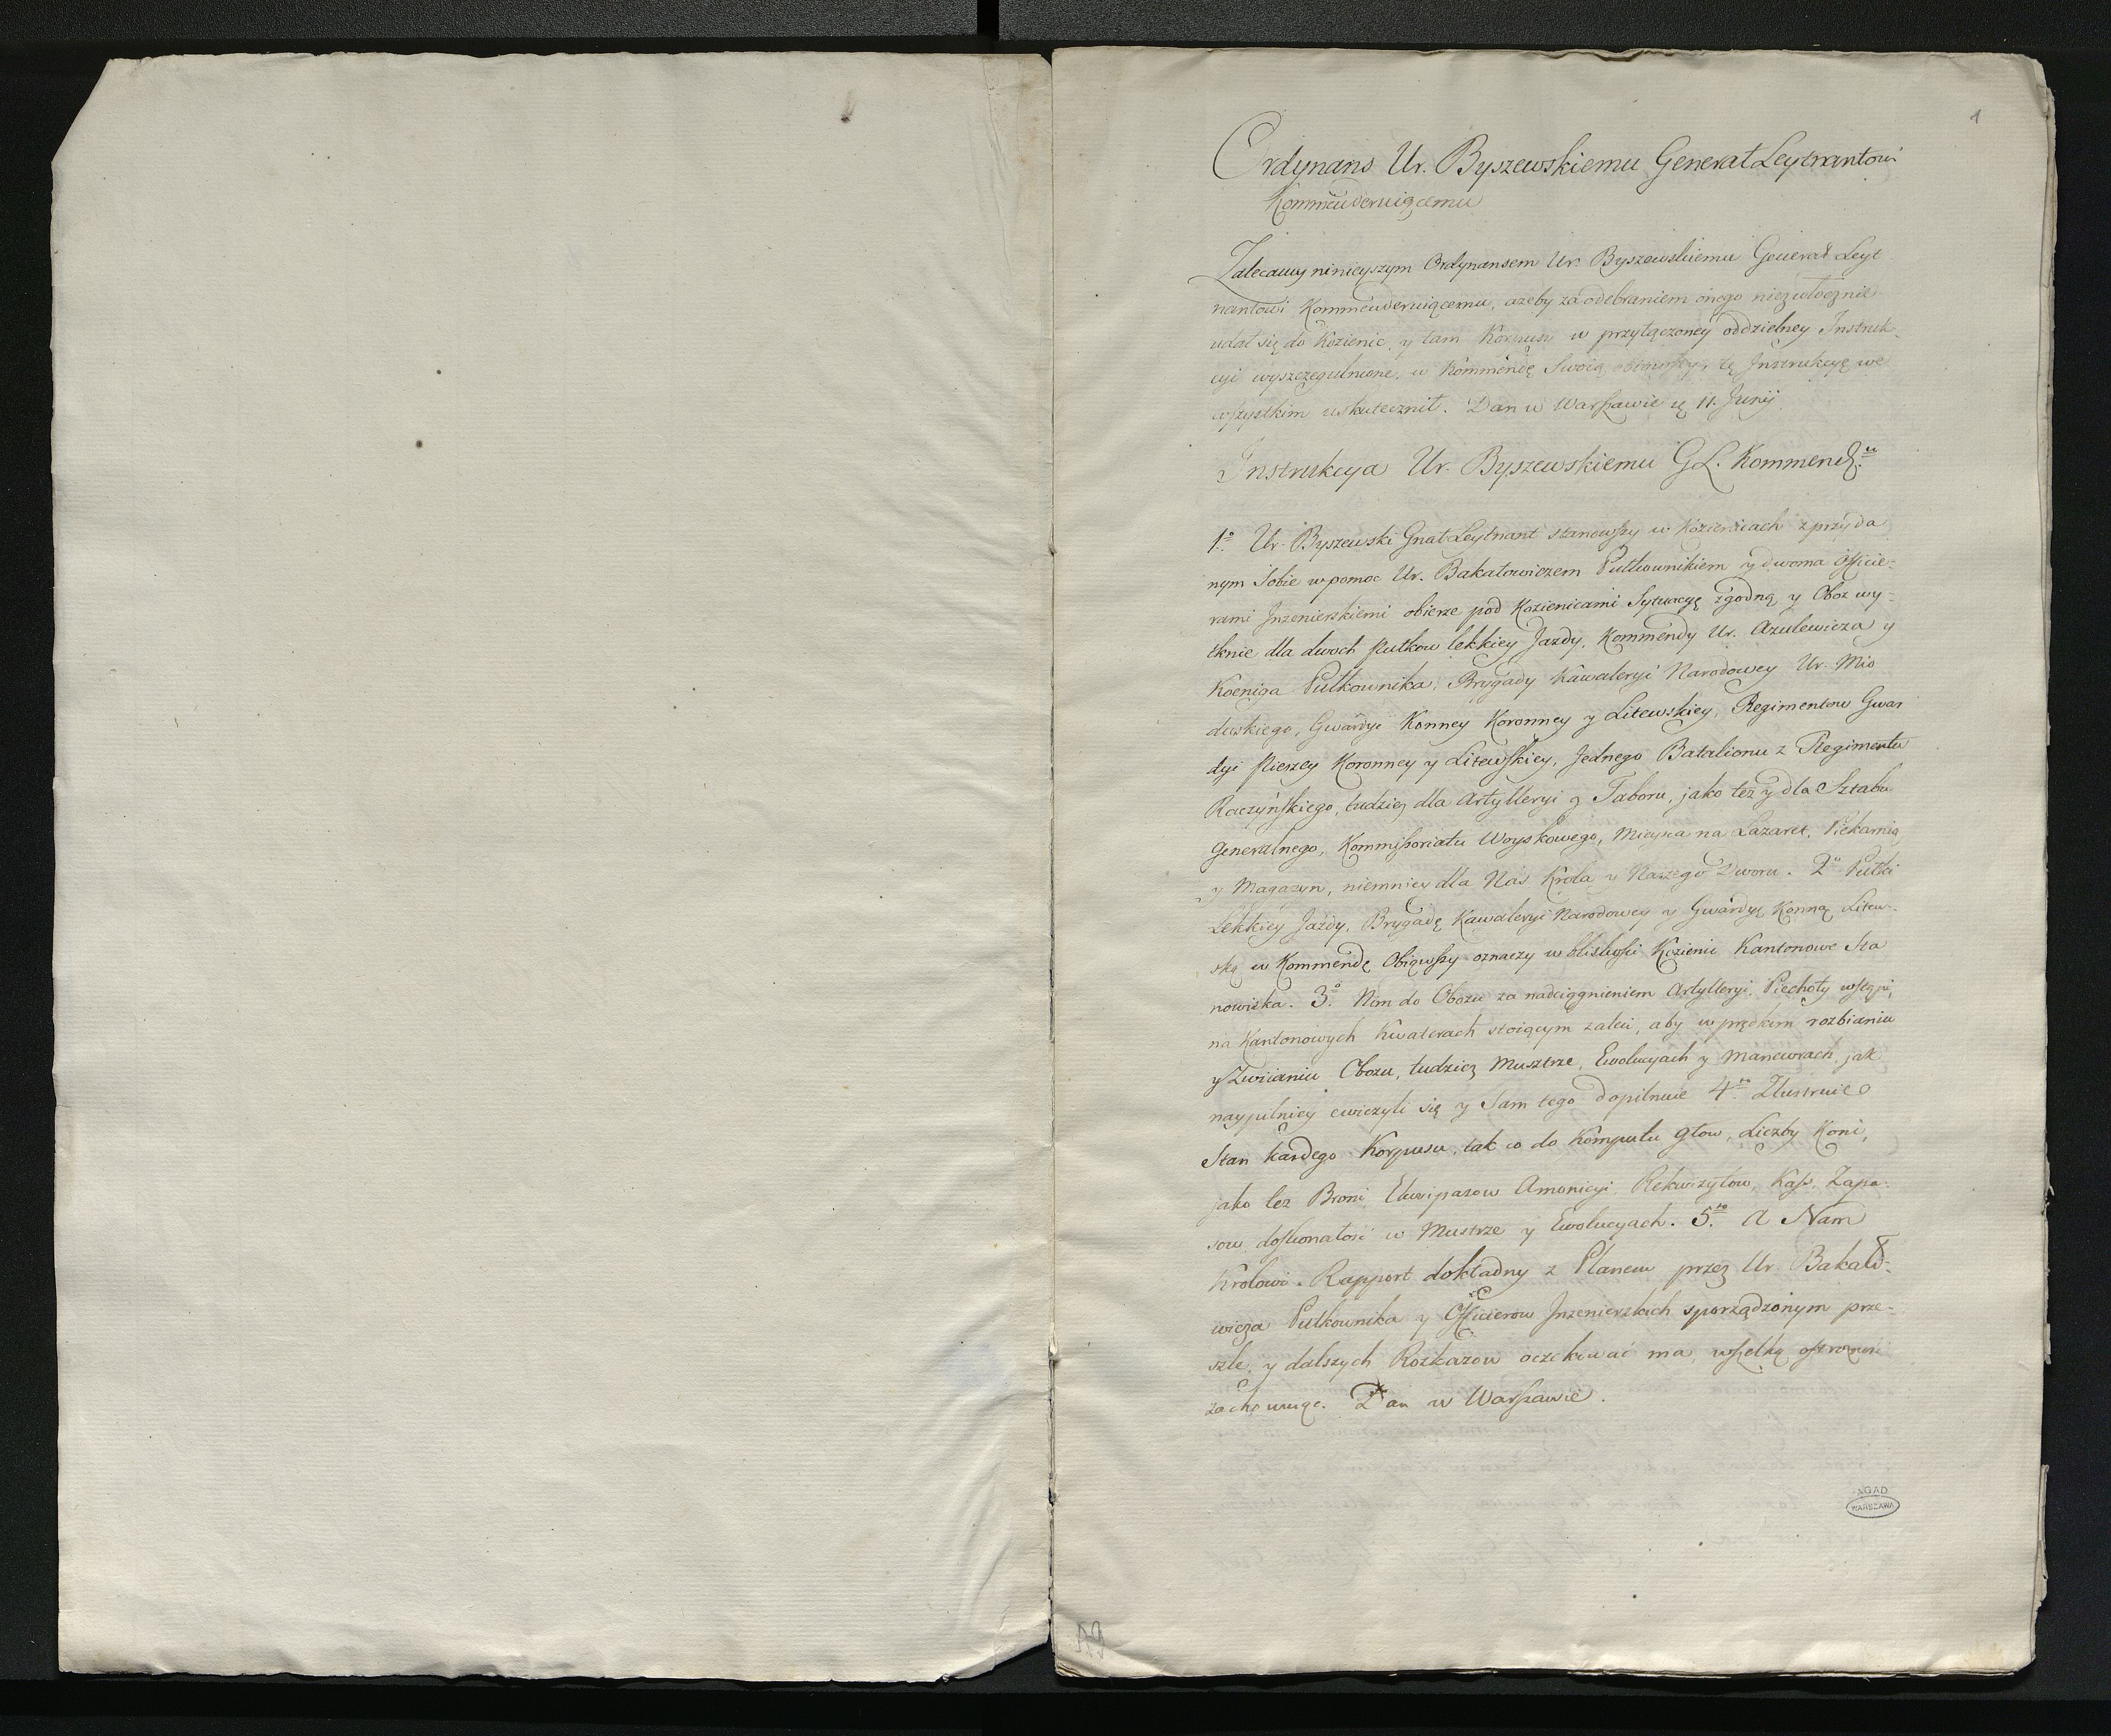 1
Ordynans Ur. Byszewskiemu Generał Leytnantowi
Kommenderuiącemu
Zalecamy ninieyszym Ordynansem Ur. Byszewskiemu Generał Leyt
nantowi Kommenderuiącemu, azeby za odebraniem onego niezwłocznie
udał się do Kozienic, y tam Korpusy w przyłączoney oddzielney Instruk-
cyi wyszczegulnione, w Kommendę Swoią obiąwszy, tę Instrukcyę we
wszystkim uskutecznił. Dan w Warszawie 11. Junij
Instrukcya Ur. Byszewskiemu GL. Kommend.u
1o. Ur. Byszewski Gnał Leytnant stanowszy w Kozienicach z przyda
nym Sobie w pomoc Ur. Bakałowiczem Pułkownikiem y dwoma Officie-
rami Inzenierskiemi obierze pod Kozienicami Sytuacyę zgodną y Oboz wy-
tknie dla dwoch Pułkow lekkiey Jazdy, Kommendy Ur. Azulewicza y
Koeniga Pułkownika, Brygady Kawaleryi Narodowey Ur. Mio
duskiego, Gwardyi Konney Koronney y Litewskiey, Regimentow Gwar
dyi Pieszey Koronney y Litewskiey, Jednego Batalionu z Regimentu
Raczyńskiego, tudziez dla Artylleryi y Taboru, jako tez y dla Sztabu
Generalnego, Kommissoriatu Woyskowego, Mieysca na Lazaret, Piekarnią
y Magazyn, niemniey dla Nas Krola y Naszego Dworu. 2o Pułki
Lekkiey Jazdy, Brygadę Kawaleryi Narodowey y Gwardyę Konną Litew-
ską w Kommendę Obiąwszy oznaczy w bliskości Kozienic Kantonowe Sta
nowiska. 3o. Nim do Obozu za nadciągnieniem Artylleryi, Piechoty wstąpi,
na Kantonowych Kwaterach stoiącym zaleci, aby w prędkim rozbianiu
y Zwiianiu Obozu, tudziez Musztrze, Ewolucyach y Manewrach jak
naypilniey cwiczyli się y Sam tego dopilnuie 4to Zlustruie
Stan kazdego Korpusu, tak co do Komputu głow, Liczby Koni,
jako tez Broni, Ekwipazow Amonicyi, Rekwizytow, Kass, Zapa-
sow doskonałosi w Mustrze y Ewolucyach. 5to. A Nam
Krolowi. Rapport dokładny z Planem przez Ur. Bakało-
wicza Pułkownika y Officierow Inzenierskich sporządzonym prze-
szle, y dalszych Rozkazow oczekiwać ma, wszelką ostroznosc
zachowuiąc. Dan w Warszawie.
AGAD
WARSZAWA